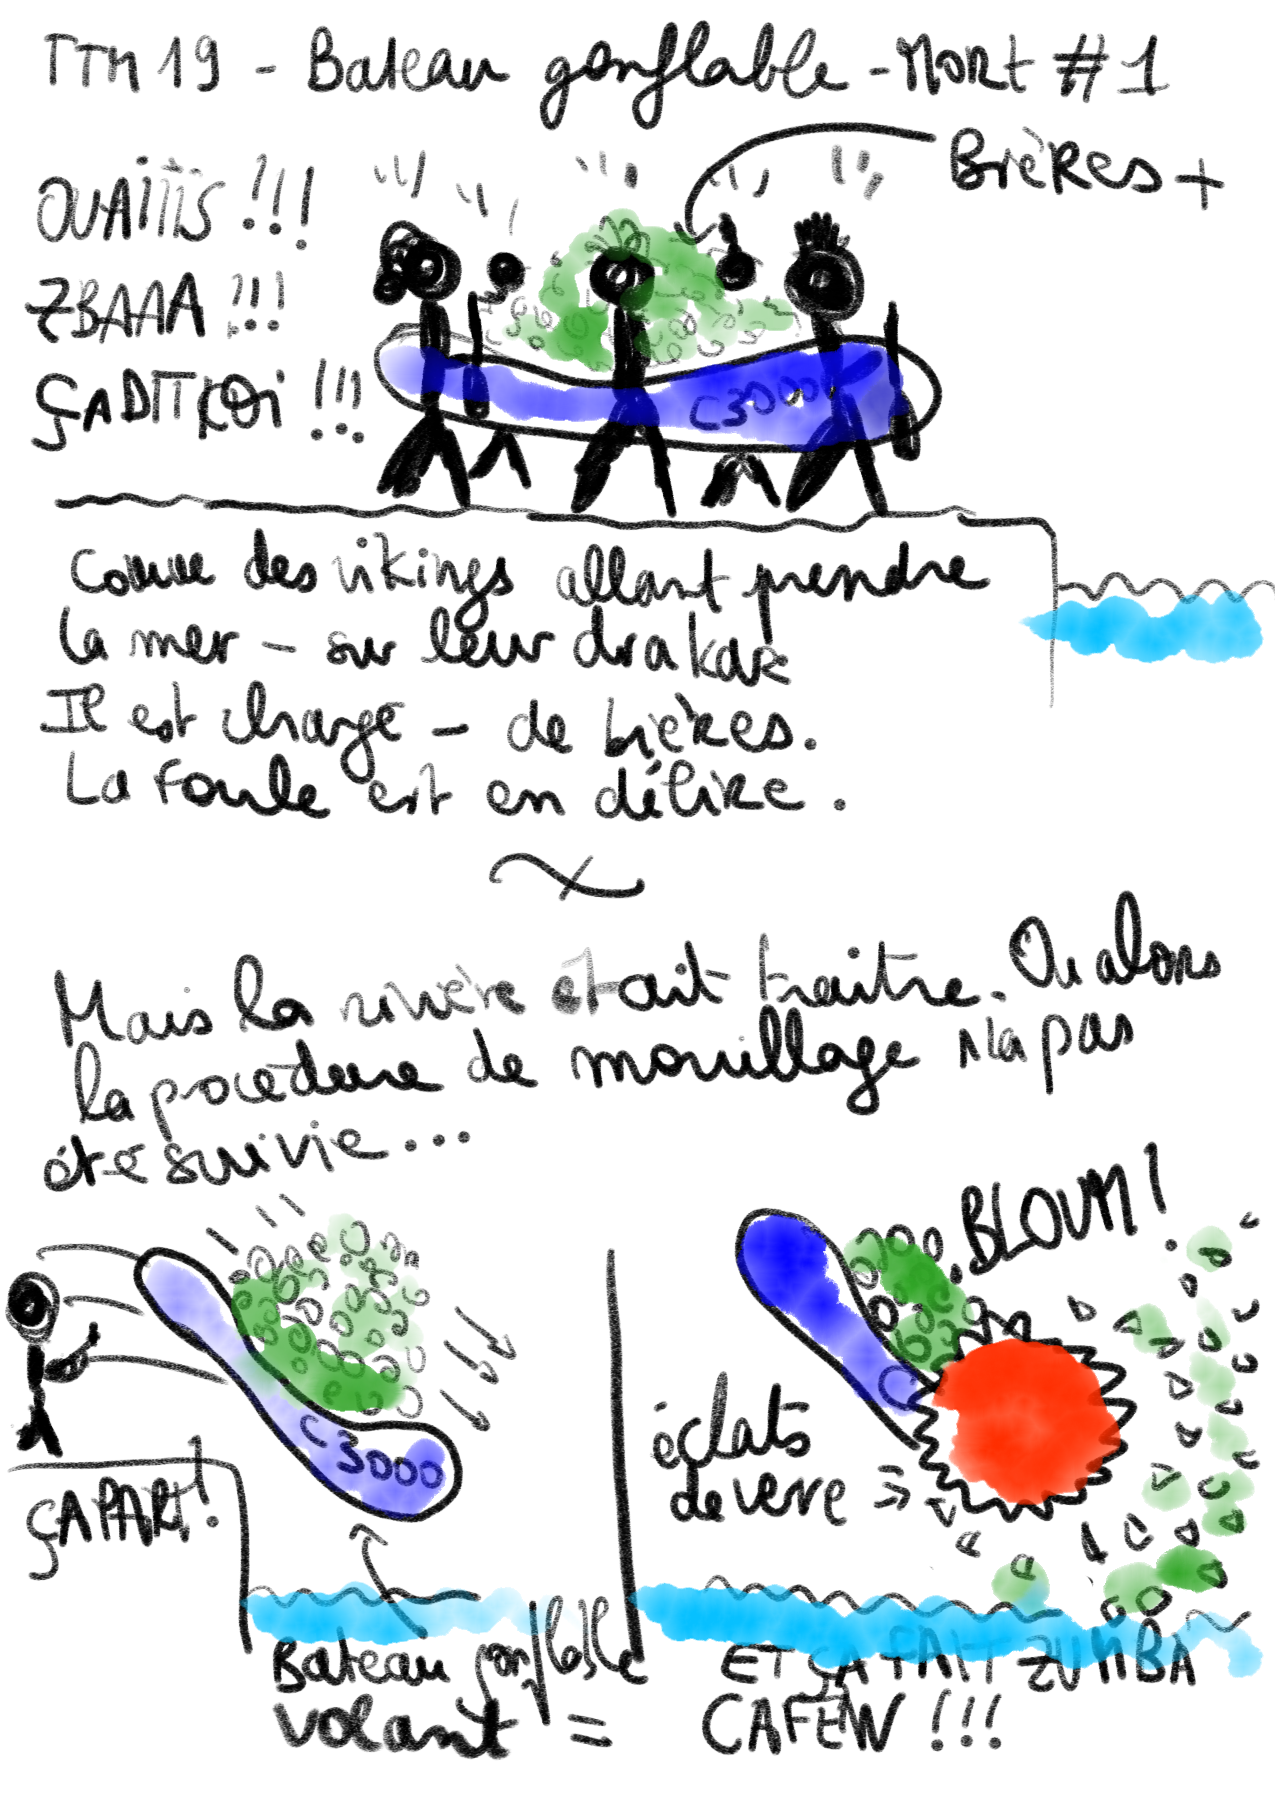 TTM 19 - Bateau gonflable - Mort #1
Bières +
OUAIIIS !!!
ZBAAA !!!
ÇADTTKOi !!!
C3000
Comme des vikings allant prendre
la mer - sur leur drakar
Il est chargé - de bières.
La foule est en délire.
Mais la rivière était traitre. Ou alors
la procédure de mouillage n'a pas
été suivie...
BLOUM !
C3000
éclats
de verre
ÇA PART !
Bateau gonflable
volant =
ET ÇA FAIT ZUMBA
CAFEW !!!